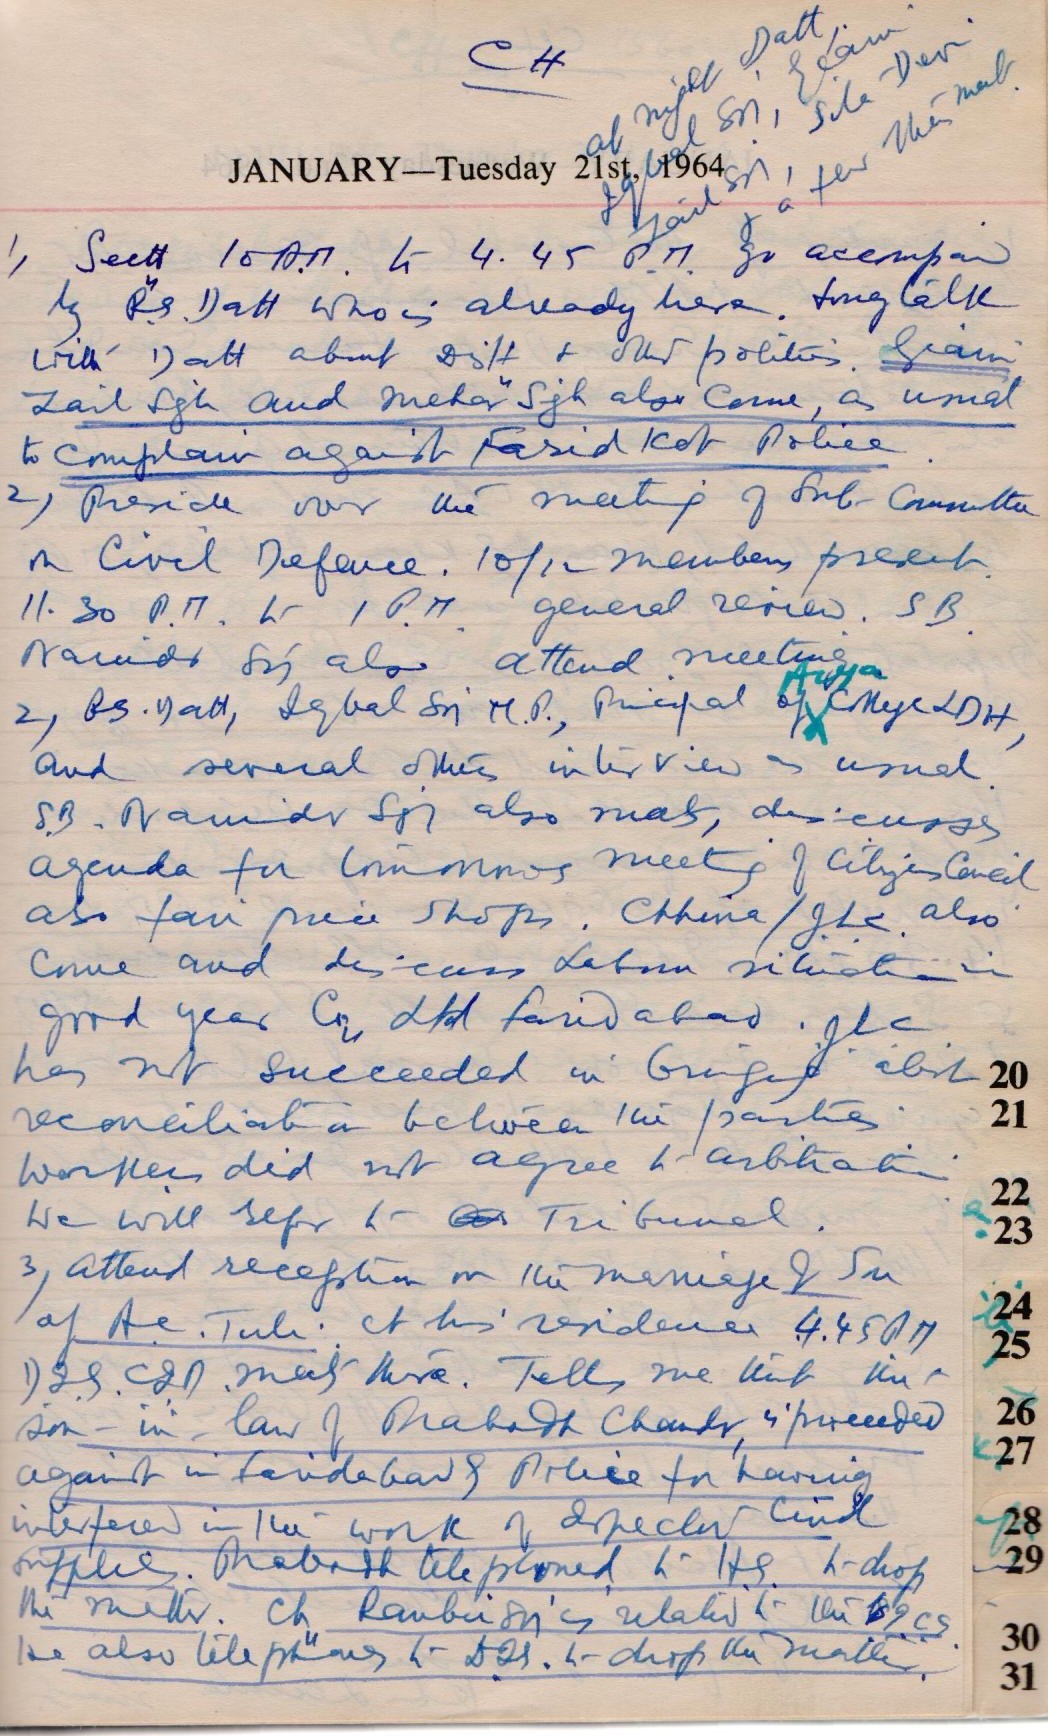 CH
at night Datt,
Iqbal Sgh, Giani
Zail Sgh, Sita Devi
& a few others meet.
JANUARY—Tuesday 21st, 1964
1, Sectt 10 A.M. to 4.45 P.M. go accompanied
by R.S. Datt who is already here. Long talk
with Datt about Distt & other politics. Giani
Zail Sgh and Mehar Sgh also come, as usual
to complain against Farid Kot Police.
2, Preside over the meeting of Sub-Committee
on Civil Defence. 10/12 members present.
11.30 P.M. to 1 P.M. general review. S.B.
Narindr Sgh also attend meeting
2, R.S. Datt, Iqbal Sgh M.P., Principal of Arya College LDH,
and several others interview as usual.
S.B. Narindr Sgh also meets, discusses
agenda for tomorrows meeting of Citizens Council
also fair price shops. Chhina/JLC also
come and discuss Labour situation in
good year Co, Ltd Faridabad. JLC
has not succeeded in bringing about
reconciliation between the parties
workers did not agree to arbitration
We will refer to Tribunal.
3, attend reception on the marriage of Son
of A.C. Tuli at his residence 4.45 PM
DIG. CID. meets there. Tells me that the
son-in-law of Prabodh Chandr, is proceeded
against in Faridabad by Police for having
interfered in the work of Inspector Civil
supplies. Prabodh telephoned to HS. to drop
the matter. Ch Ranbir Sgh is related to the
He also telephones to DIG. to drop the matter.
20
21
22
23
24
25
26
27
28
29
30
31